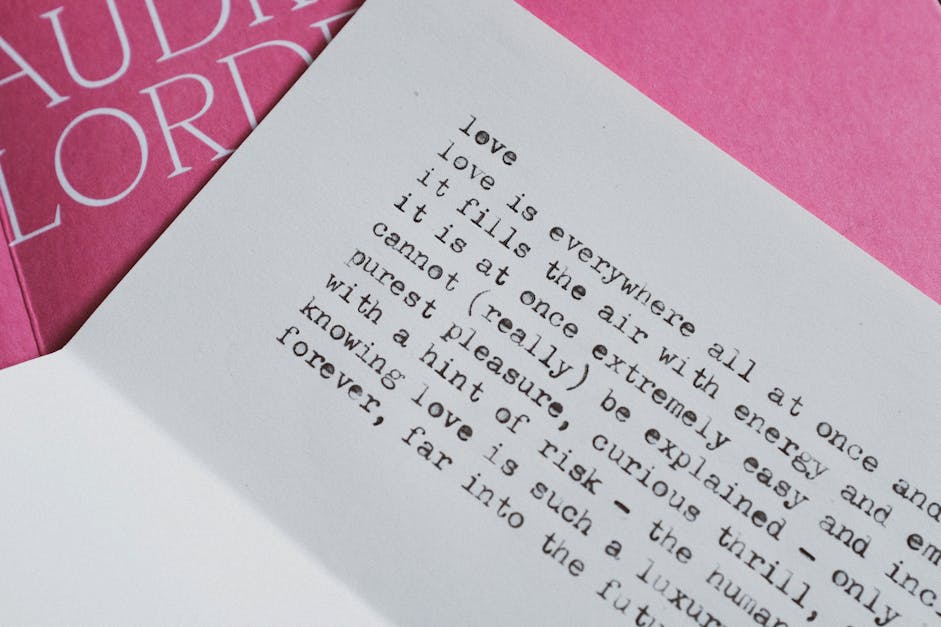 AUDR
LORDE
love
love is everywhere all at once and
it fills the air with energy and em
it is at once extremely easy and inc
cannot (really) be explained - only
purest pleasure, curious thrill,
with a hint of risk - the human
knowing love is such a luxur
forever, far into the futu